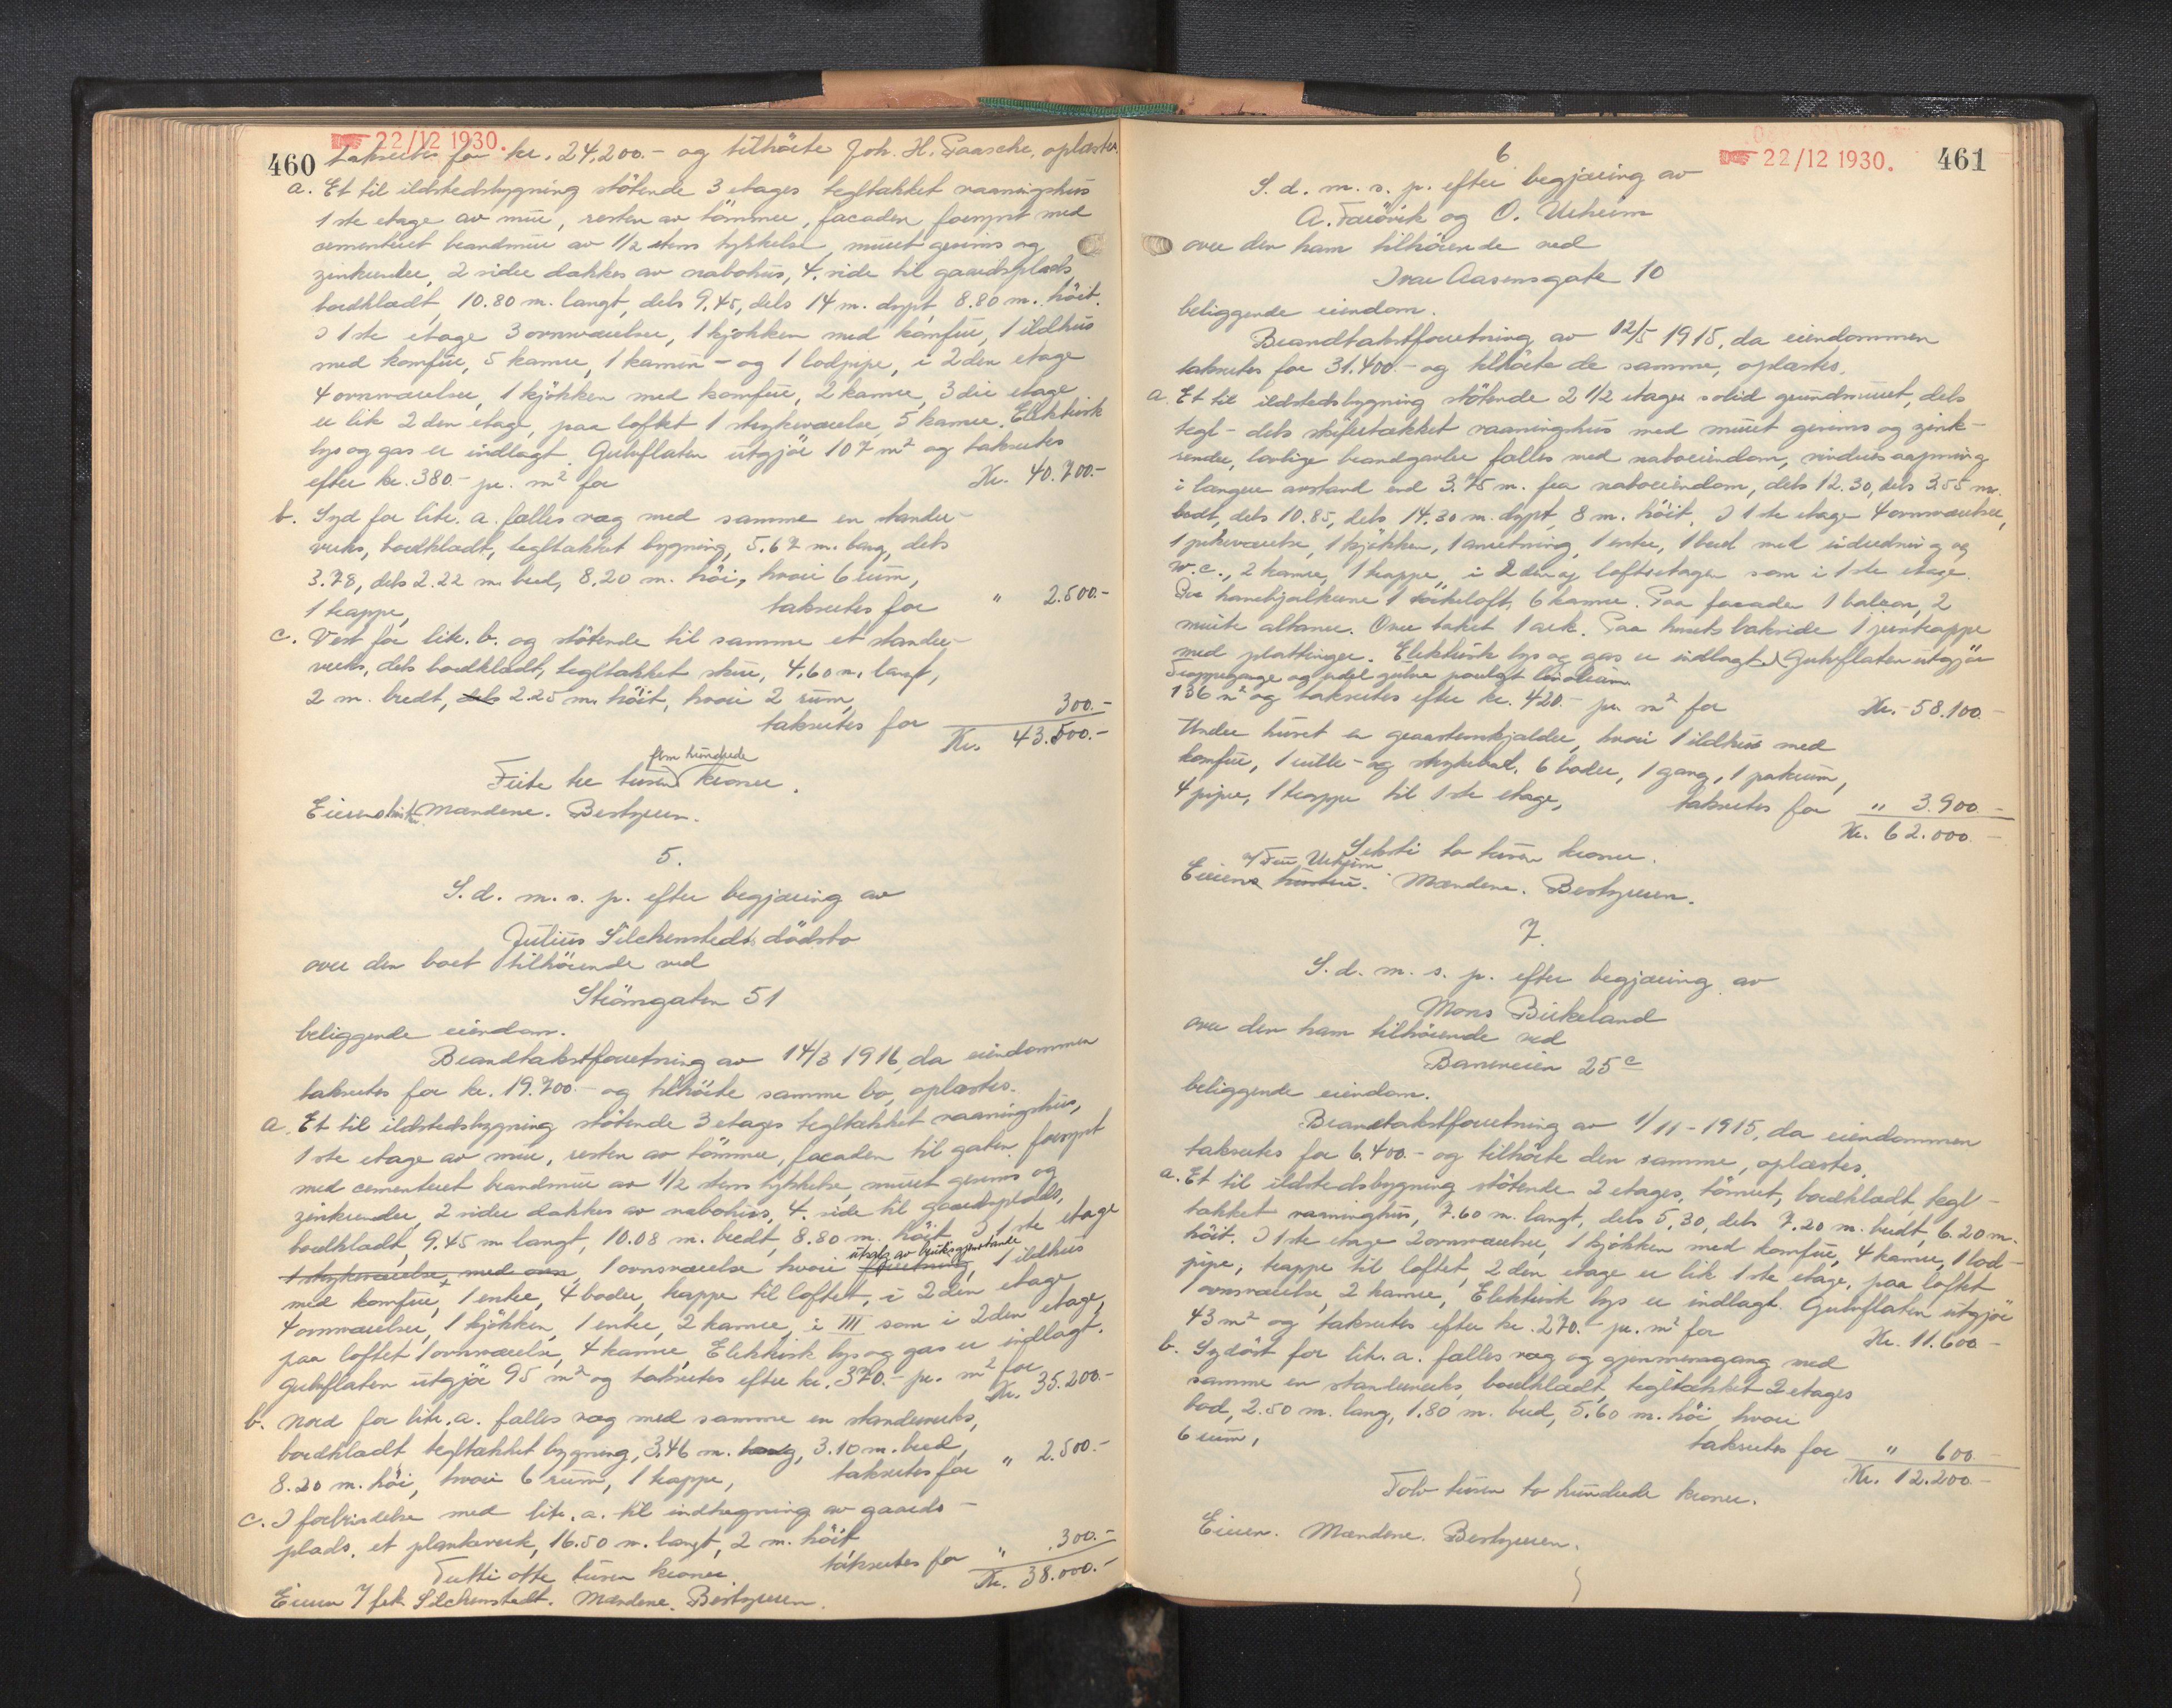 22/12 1930.
460
takseretes for kr. 24,200.- og tilhörte Joh. H. Paasche, oplæstes.
a. Et til ildstedsbygning stötende 3 etages tegltækket vaaningshus
1 ste etage av mur, resten av tömmer, facaden forsynt med
cementeret brandmur av 1/2 stens tykkelse, muret gesims og
zinkrender, 2 sider dækkes av nabohus, 4. side til gaardsplads,
bordklædt, 10.80 m. langt, dels 9.45, dels 14 m. dypt, 8.80 m. höit.
I 1 ste etage 3 ovnsværelser, 1 kjökken med komfur, 1 ildhus
med komfur, 5 kamre, 1 kamin- og 1 lodpipe, i 2den etage
4 ovnsværelser, 1 kjökken med komfur, 2 kamre, 3die etage
er lik 2 den etage, paa loftet 1 strykeværelse, 5 kamre. Elektrisk
lys og gas er indlagt. Gulvflaten utgjör 107 m² og takseres
efter kr. 380.- pr. m² for Kr. 40.700.-
b. Syd for litr. a. fælles væg med samme en stander-
verks, bordklædt, tegltækket bygning, 5.67 m. lang, dels
3.78, dels 2.22 m. bred, 8.20 m. höi, hvori 6 rum,
1 trappe, takseres for " 2.500.-
c. Vest for litr. b. og stötende til samme et stander-
verks, dels bordklædt, tegltækket skur, 4.60 m. langt,
2 m. bredt, dels 2.25 m. höit, hvori 2 rum,
takseres for 300.-
Kr. 43.500.-
fem hundrede
Firti tre tusen kroner.
Eierens Mændene. Bestyreren.
5.
S. d. m. s. p. efter begjæring av
Julius Silchenstedts dödsbo
over den boet tilhörende ved
Strömgaten 51
beliggende eiendom.
Brandtakstforretning av 14/3 1916, da eiendommen
takseretes for kr. 19.700.- og tilhörte samme bo, oplæstes.
a. Et til ildstedsbygning stötende 3 etages tegltækket vaaningshus,
1 ste etage av mur, resten av tömmer, facaden til gaten forsynt
med cementeret brandmur av 1/2 stens tykkelse, muret gesims og
zinkrender, 2 sider dækkes av nabohus, 4. side til gaardsplads,
bordklædt, 9.45 m langt, 10.08 m. bredt, 8.80 m. höit. I 1 ste etage
utsalg av bruksgjenstande
1 strykeværelse, med ovn, 1 ovnsværelse hvori forretning, 1 ildhus
med komfur, 1 entre, 4 boder, trappe til loftet, i 2den etage
4 ovnsværelser, 1 kjökken, 1 entre, 2 kamre, i III som i 2den etage,
paa loftet 1 ovnsværelse, 4 kamre, Elektrisk lys og gas er indlagt.
Gulvflaten utgjör 95 m² og takseres efter kr. 370.- pr. m² for
Kr. 35.200.-
b. Nord for litr. a. fælles væg med samme en standerverks,
bordklædt tegltækket bygning, 3.46 m. lang, 3.10 m. bred,
8.20 m. höi, hvori 6 rum, 1 trappe, takseres for " 2.500.-
c. I forbindelse med litr. a. til indhegning av gaards-
plads, et plankeverk, 16.50 m. langt, 2 m. höit,
takseres for " 300.-
Tretti otte tusen kroner. Kr. 38.000.-
Eieren v/ frk. Silchenstedt. Mændene. Bestyreren.
22/12 1930.
461
6
S. d. m. s. p. efter begjæring av
A. Farövik og O. Utheim
over den ham tilhörende ved
Ivar Aasensgate 10
beliggende eiendom.
Brandtakstforretning av 12/5 1915, da eiendommen
takseretes for 31.400.- og tilhörte de samme, oplæstes.
a. Et til ildstedsbygning stötende 2 1/2 etages solid grundmuret, dels
tegl- dels skifertækket vaaningshus med muret gesims og zink-
render, lovlige brandgavler fælles med naboeiendom, vinduesaapning
i længere avstand end 3.75 m. fra naboeiendom, dels 12.30, dels 3.55 m.
bredt, dels 10.85, dels 14.30 m. dypt, 8 m. höit. I 1 ste etage 4 ovnsværelser,
1 pikeværelse, 1 kjökken, 1 anretning, 1 entre, 1 bad med indredning og
w.c., 2 kamre, 1 trappe, i 2 den og loftsetagen som i 1 ste etage.
Over hanebjælkerne 1 törkeloft, 6 kamre. Paa facaden 1 balcon, 2
murte altaner. Over taket 1 ark. Paa husets bakside 1 jerntrappe
med plattinger. Elektrisk lys og gas er indlagt. Gulvflaten utgjör
Trappegange og endel gulve paalagt linoleum
136 m² og takseres efter kr. 420.- pr. m² for Kr. 58.100.-
Under huset er graastenskjælder, hvori 1 ildhus med
komfur, 1 rulle- og strykebod, 6 boder, 1 gang, 1 patrum,
4 piper, 1 trappe til 1 ste etage, takseres for " 3.900.-
Kr. 62.000.-
Seksti to tusen kroner.
v/ Fru Utheim
Eierens hustru. Mændene. Bestyreren.
7.
S. d. m. s. p. efter begjæring av
Mons Birkeland
over den ham tilhörende ved
Baneveien 25 c
beliggende eiendom.
Brandtakstforretning av 1/11-1915, da eiendommen
takseretes for 6.400.- og tilhörte den samme, oplæstes.
a. Et til ildstedsbygning stötende 2 etages, tömret, bordklædt, tegl-
tækket vaaningshus, 7.60 m. langt, dels 5.30, dels 7.20 m. bredt, 6.20 m.
höit. I 1 ste etage 2 ovnsværelser, 1 kjökken med komfur, 4 kamre, 1 lod-
pipe, trappe til loftet, 2 den etage er lik 1 ste etage, paa loftet
1 ovnsværelse, 2 kamre, Elektrisk lys er indlagt. Gulvflaten utgjör
43 m² og takseres efter kr. 270.- pr. m² for Kr. 11.600.-
b. Sydöst for litr. a. fælles væg og gjennemgang med
samme en standerverks, bordklædt, tegltækket 2 etages
bod, 2.50 m. lang, 1.80 m. bred, 5.60 m. höi, hvori
6 rum, takseres for " 600.-
Kr. 12.200.-
Tolv tusen to hundrede kroner.
Eieren. Mændene. Bestyreren.